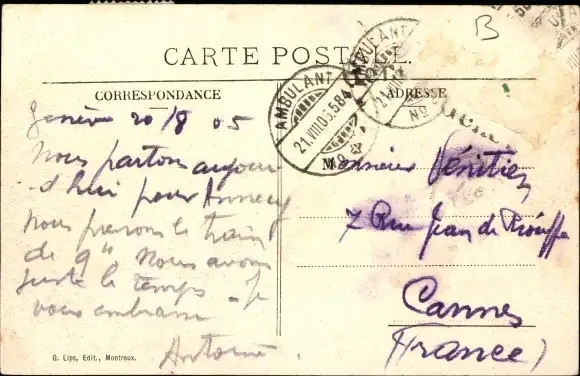 B
CARTE POSTALE.
CORRESPONDANCE
ADRESSE
AMBULANT
21.VIII.05.584
No
AMBULANT
No
Genève 20/8 05
Nous partons aujour
d'hui pour Annecy
Nous prenons le train
de 9h Nous avons
juste le temps Je
vous embrasse
Antoine
Monsieur Vénitien
7 Rue Jean de Riouffe
Cannes
(France)
G. Lips, Edit., Montreux.